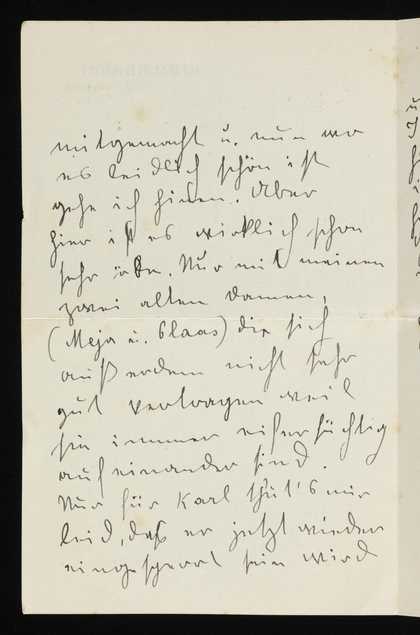 mitgemacht u. nun wo
es leidlich schön ist
gehe ich hinein. Aber
hier ist es wirklich schon
sehr öde. Nur mit meinen
zwei alten Damen,
(Meja u. Claas) die sich
außerdem nicht sehr
gut vertragen weil
sie immer eifersüchtig
aufeinander sind.
Nur für Karl thut's mir
leid, daß er jetzt wieder
eingesperrt sein wird